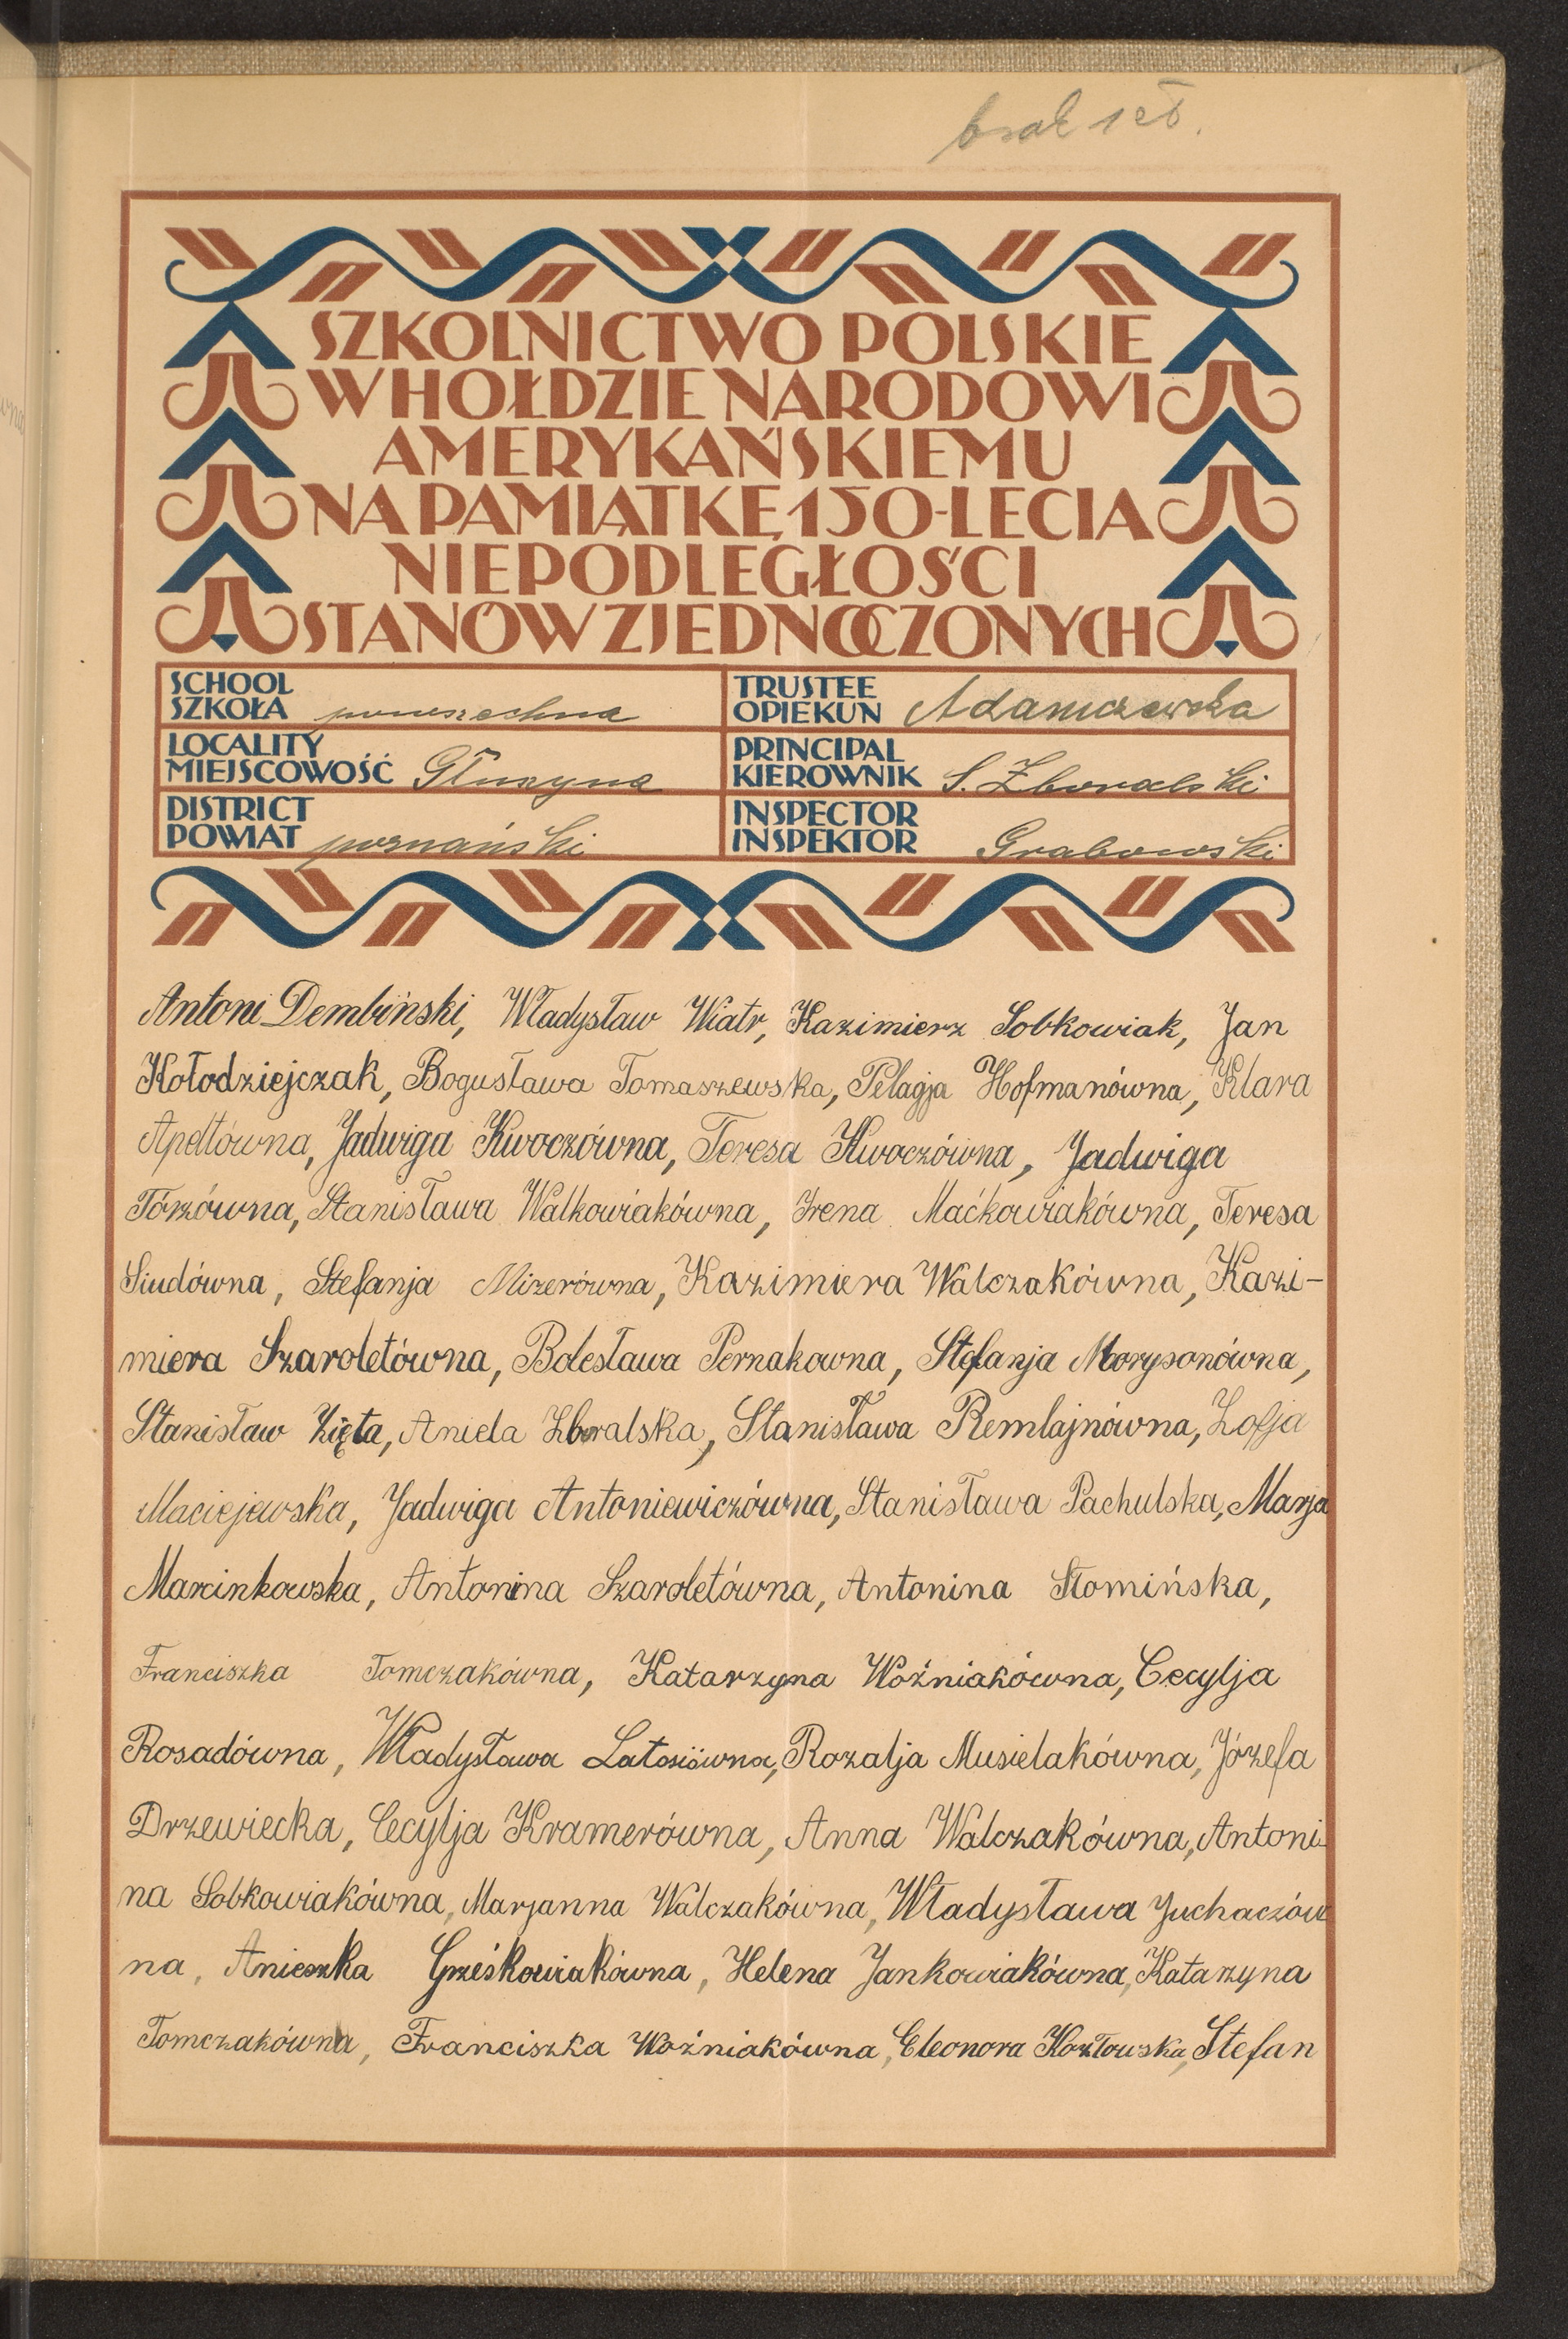 brak 1 zł.
SZKOLNICTWO POLSKIE
W HOŁDZIE NARODOWI
AMERYKAŃSKIEMU
NA PAMIĄTKĘ 150-LECIA
NIEPODLEGŁOŚCI
STANÓW ZJEDNOCZONYCH
SCHOOL
SZKOŁA powszechna
TRUSTEE
OPIEKUN Adamczewska
LOCALITY
MIEJSCOWOŚĆ Głuszyna
PRINCIPAL
KIEROWNIK S. Zboralski
DISTRICT
POWIAT poznański
INSPECTOR
INSPEKTOR Grabowski
Antoni Dembiński, Władysław Wiatr, Kazimierz Sobkowiak, Jan
Kołodziejczak, Bogusława Tomaszewska, Pelagja Hofmanówna, Klara
Apeltówna, Jadwiga Kwoczówna, Teresa Kwoczówna, Jadwiga
Tórzówna, Stanisława Walkowiakówna, Irena Maćkowiakówna, Teresa
Siudówna, Stefanja Mizerówna, Kazimiera Walczakówna, Kazi-
miera Szaroletówna, Bolesława Pernakowna, Stefanja Morysonówna,
Stanisław Zięta, Aniela Zboralska, Stanisława Remlajnówna, Zofja
Maciejewska, Jadwiga Antoniewiczówna, Stanisława Pachulska, Marja
Marcinkowska, Antonina Szaroletówna, Antonina Słomińska,
Franciszka Tomczakówna, Katarzyna Woźniakówna, Cecylja
Rosadówna, Władysława Latosiówna, Rozalja Musielakówna, Józefa
Drzewiecka, Cecylja Kramerówna, Anna Walczakówna, Antoni-
na Sobkowiakówna, Marjanna Walczakówna, Władysława Juchaczów
na, Anieszka Grześkowiakówna, Helena Jankowiakówna, Katarzyna
Tomczakówna, Franciszka Woźniakówna, Eleonora Kozłowska, Stefan